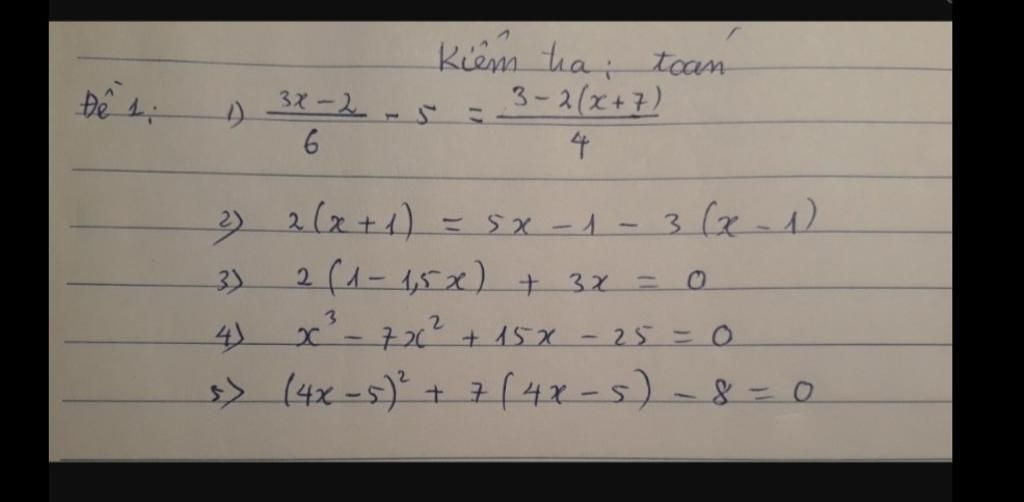 Kiểm tra: toán
Đề 1: 1) (3x - 2)/6 - 5 = (3 - 2(x + 7))/4
2) 2(x + 1) = 5x - 1 - 3(x - 1)
3) 2(1 - 1,5x) + 3x = 0
4) x³ - 7x² + 15x - 25 = 0
5) (4x - 5)² + 7(4x - 5) - 8 = 0